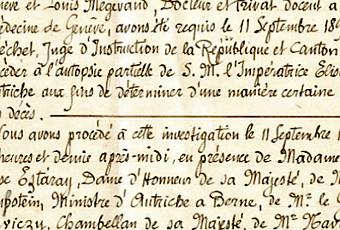 ève et Louis Mégevand, Docteur et Privat docent à
édecine de Genève, avons été requis le 11 Septembre 189
échet, Juge d'Instruction de la République et Canton
céder à l'autopsie partielle de S. M. l'Impératrice Elis
utriche aux fins de déterminer d'une manière certaine
n décès.
ous avons procédé à cette investigation le 11 Septembre 1
heures et demie après-midi, en présence de Madame
se Sztaray, Dame d'Honneur de sa Majesté, de M
epstein, Ministre d'Autriche à Berne, de Mr le
viczy, Chambellan de sa Majesté, de Mr Nav